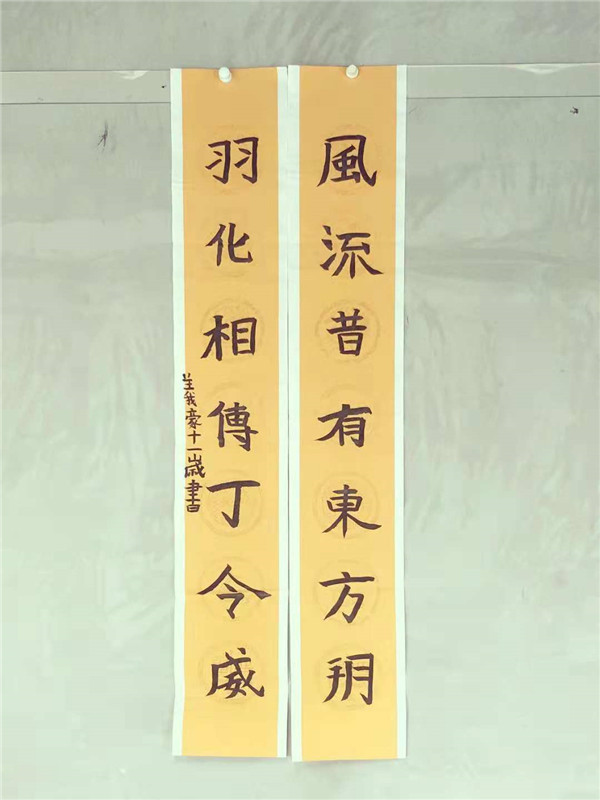 風流昔有東方玥
羽化相傳丁令威
羲豪十一歲書